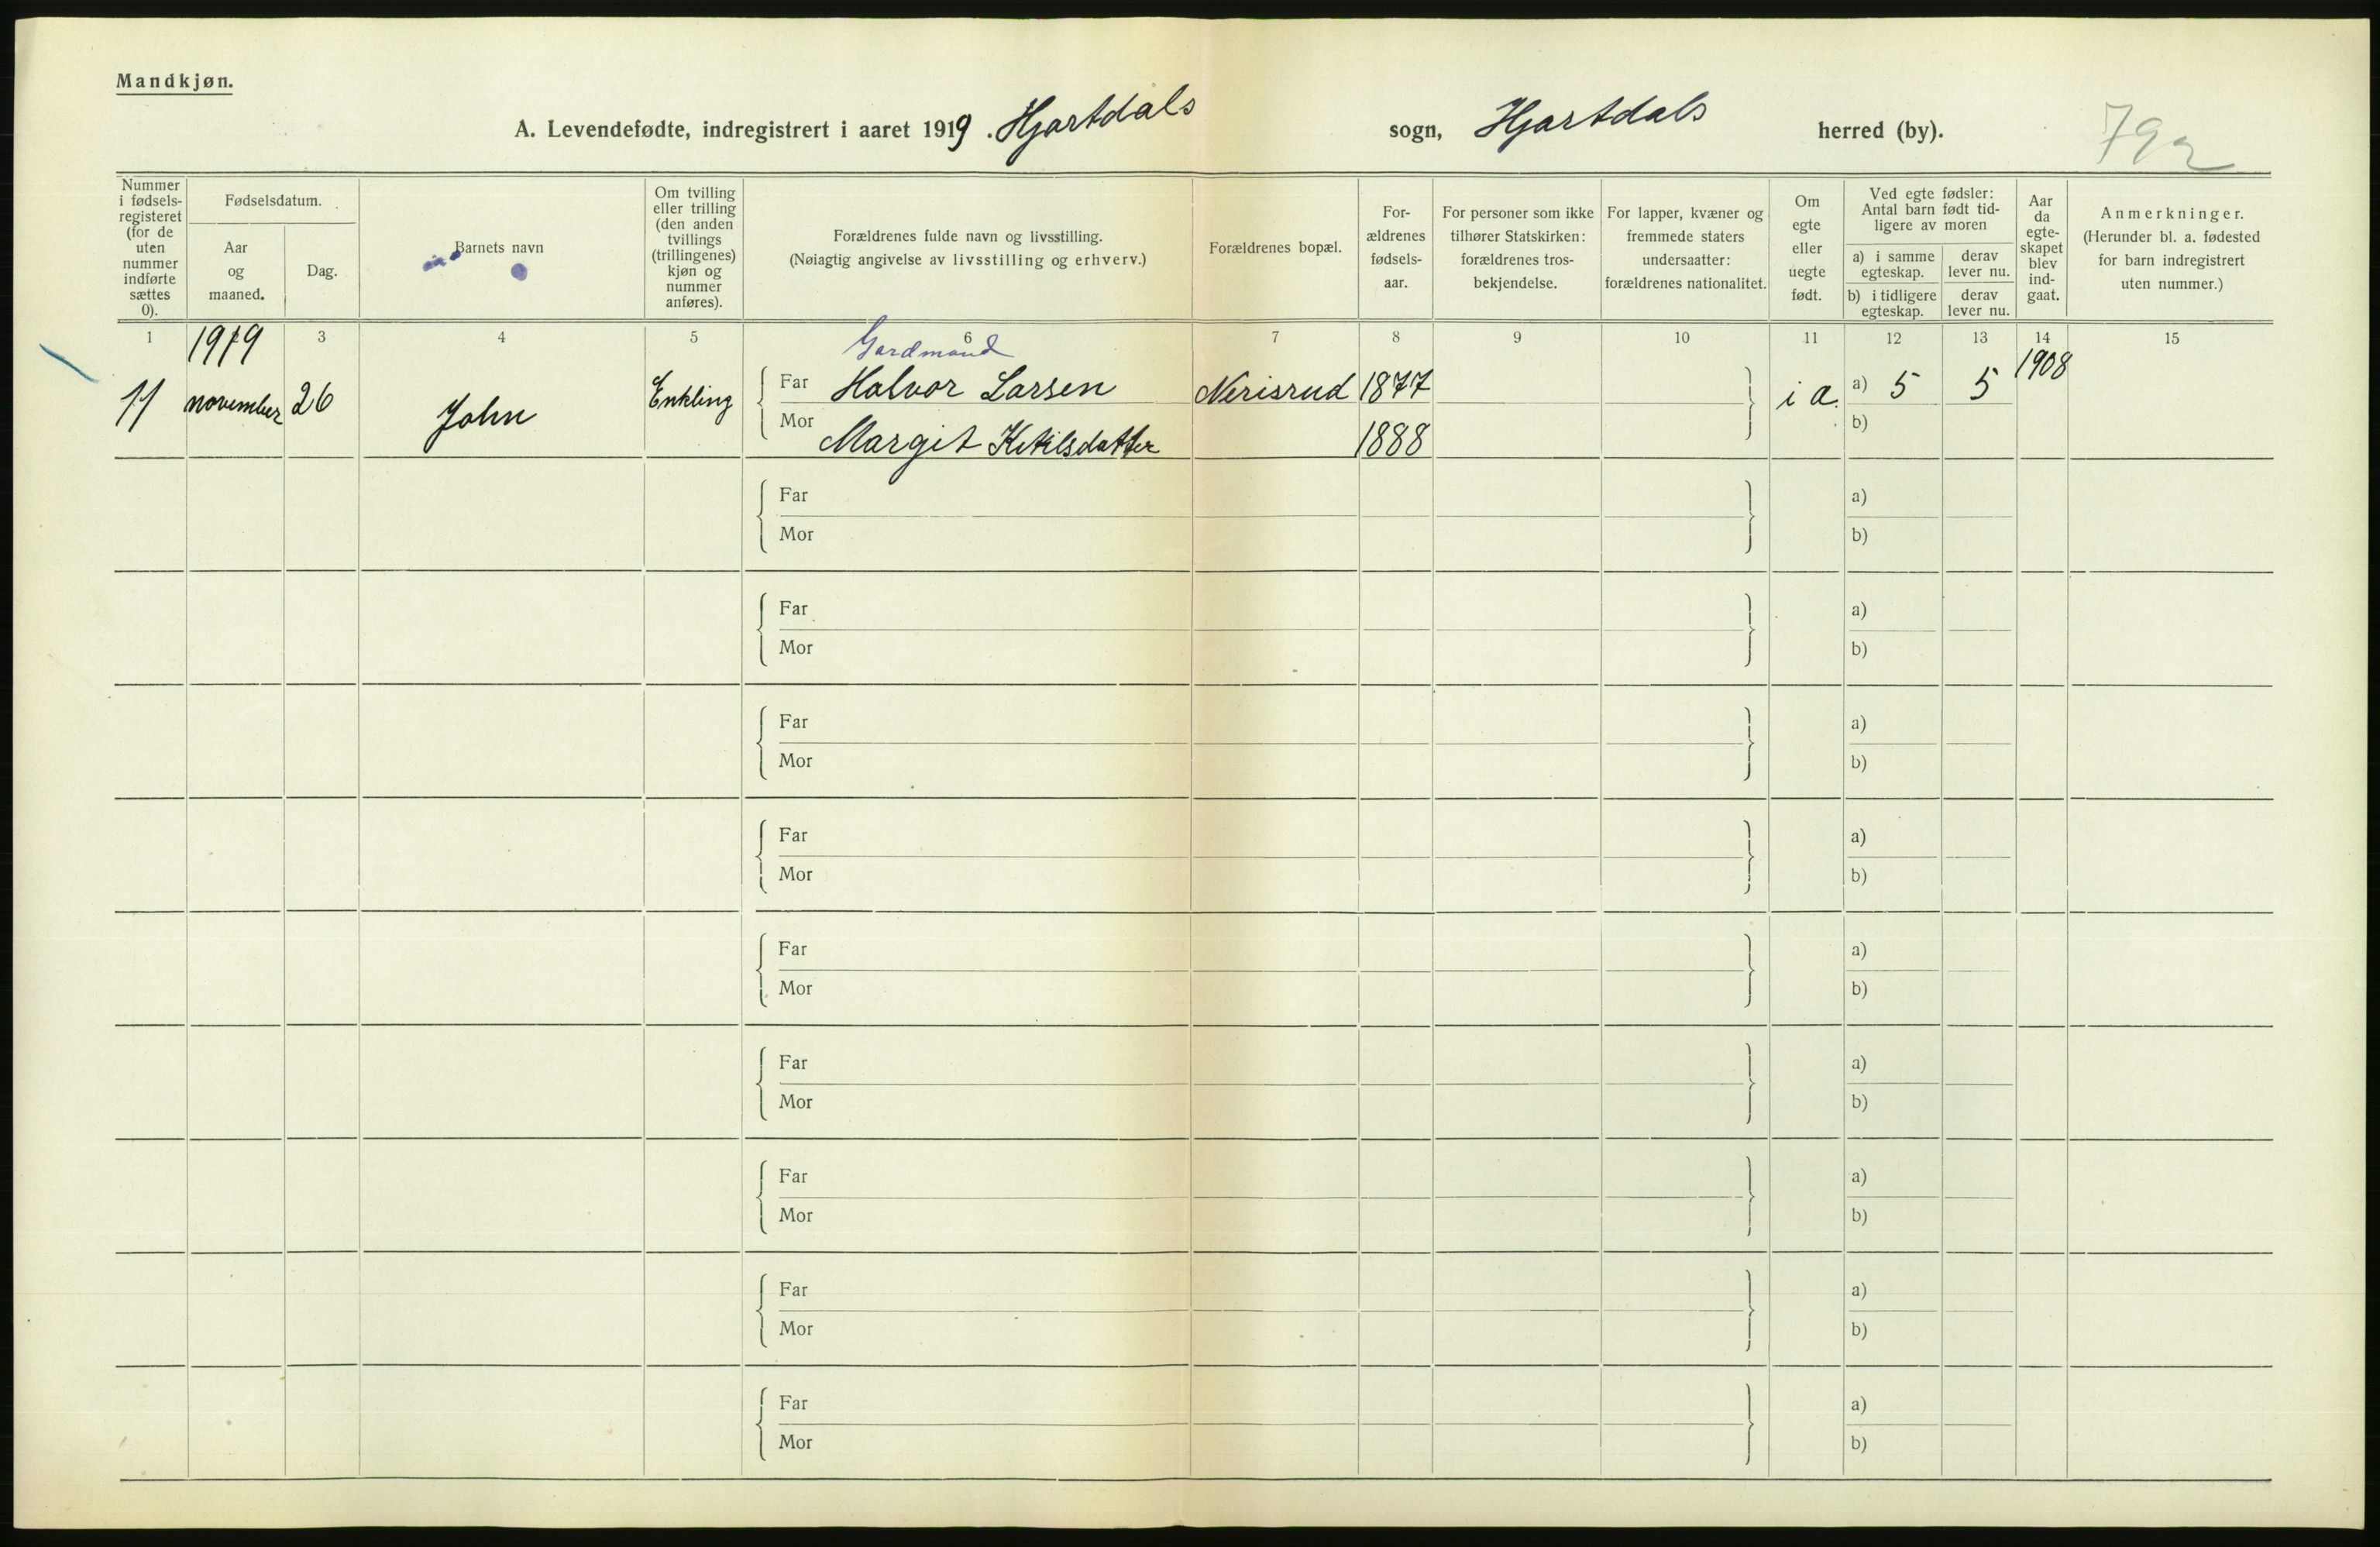 Mandkjøn.
A. Levendefødte, indregistrert i aaret 1919. Hjartdals sogn, Hjartdals herred (by).
792
Nummer i fødsels-registeret (for de uten nummer indførte sættes 0).
Fødselsdatum.
Aar og maaned.
Dag.
Barnets navn
Om tvilling eller trilling (den anden tvillings (trillingenes) kjøn og nummer anføres).
Forældrenes fulde navn og livsstilling.
(Nøiagtig angivelse av livsstilling og erhverv.)
Forældrenes bopæl.
For-ældrenes fødsels-aar.
For personer som ikke tilhører Statskirken: forældrenes tros-bekjendelse.
For lapper, kvæner og fremmede staters undersaatter: forældrenes nationalitet.
Om egte eller uegte født.
Ved egte fødsler: Antal barn født tid-ligere av moren
a) i samme egteskap.
derav lever nu.
b) i tidligere egteskap.
derav lever nu.
Aar da egte-skapet blev ind-gaat.
Anmerkninger.
(Herunder bl. a. fødested for barn indregistrert uten nummer.)
1 3 4 5 6 7 8 9 10 11 12 13 14 15
1919
Gardmand
11 november 26 John Enkling Far Halvor Larsen Nerisrud 1877 i a. a) 5 5 1908
Mor Margit Ketilsdatter 1888 b)
Far a)
Mor b)
Far a)
Mor b)
Far a)
Mor b)
Far a)
Mor b)
Far a)
Mor b)
Far a)
Mor b)
Far a)
Mor b)
Far a)
Mor b)
Far a)
Mor b)